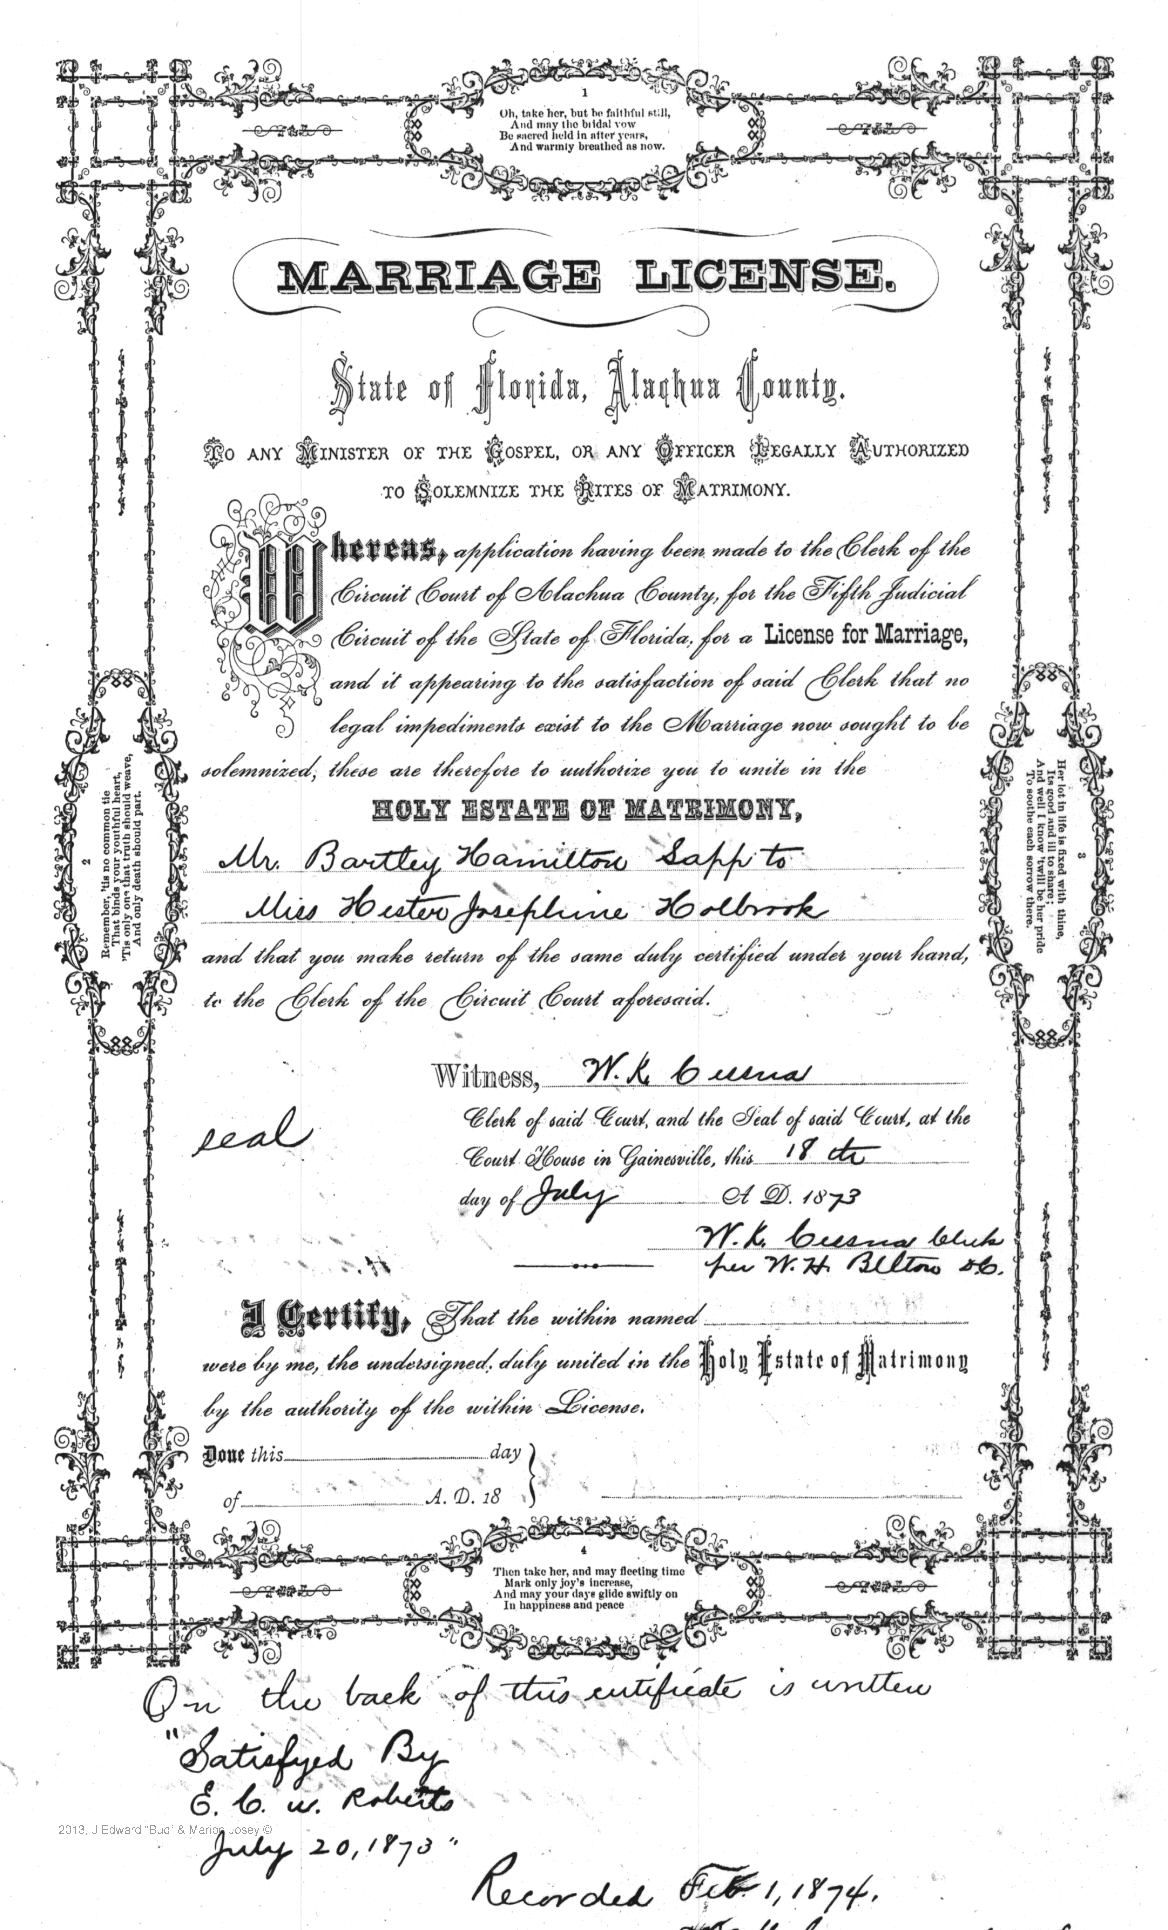 1
Oh, take her, but be faithful still,
And may the bridal vow
Be sacred held in after years,
And warmly breathed as now.
MARRIAGE LICENSE.
State of Florida, Alachua County.
TO ANY MINISTER OF THE GOSPEL, OR ANY OFFICER LEGALLY AUTHORIZED
TO SOLEMNIZE THE RITES OF MATRIMONY.
Whereas, application having been made to the Clerk of the
Circuit Court of Alachua County, for the Fifth Judicial
Circuit of the State of Florida, for a License for Marriage,
and it appearing to the satisfaction of said Clerk that no
legal impediments exist to the Marriage now sought to be
solemnized, these are therefore to authorize you to unite in the
HOLY ESTATE OF MATRIMONY,
Mr. Bartley Hamilton Sapp to
Miss Hester Josephine Holbrook
and that you make return of the same duly certified under your hand,
to the Clerk of the Circuit Court aforesaid.
2
Remember, 'tis no common tie
That binds your youthful heart,
'Tis only one that truth should weave,
And only death should part.
3
Her lot in life is fixed with thine,
Its good and ill to share;
And well I know 'twill be her pride
To soothe each sorrow there.
Witness, W. K. Cessna
seal
Clerk of said Court, and the Seal of said Court, at the
Court House in Gainesville, this 18th
day of July A D. 1873
W. K. Cessna Clerk
per W. H. Belton DC.
I Certify, That the within named
were by me, the undersigned, duly united in the Holy Estate of Matrimony
by the authority of the within License.
Done this day
of A. D. 18
4
Then take her, and may fleeting time
Mark only joy's increase,
And may your days glide swiftly on
In happiness and peace
On the back of this certificate is written
"Satisfyed By
E. C. W. Roberts
2013, J Edward "Bud" & Marion Josey ©
July 20, 1873"
Recorded Feb. 1, 1874.